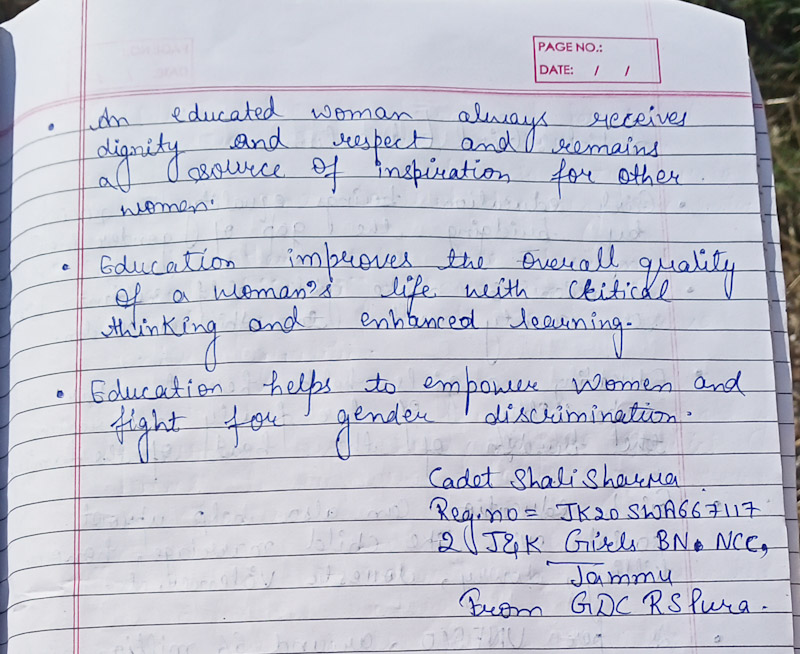 PAGE NO.:
DATE: / /
• An educated woman always receives
dignity and respect and remains
a source of inspiration for other
women.
• Education improves the overall quality
of a woman's life with critical
thinking and enhanced learning.
• Education helps to empower women and
fight for gender discrimination.
Cadet Shali Sharma
Reg.no = JK20 SWA667117
2 J&K Girls BN. NCC,
Jammu
From GDC RS Pura.